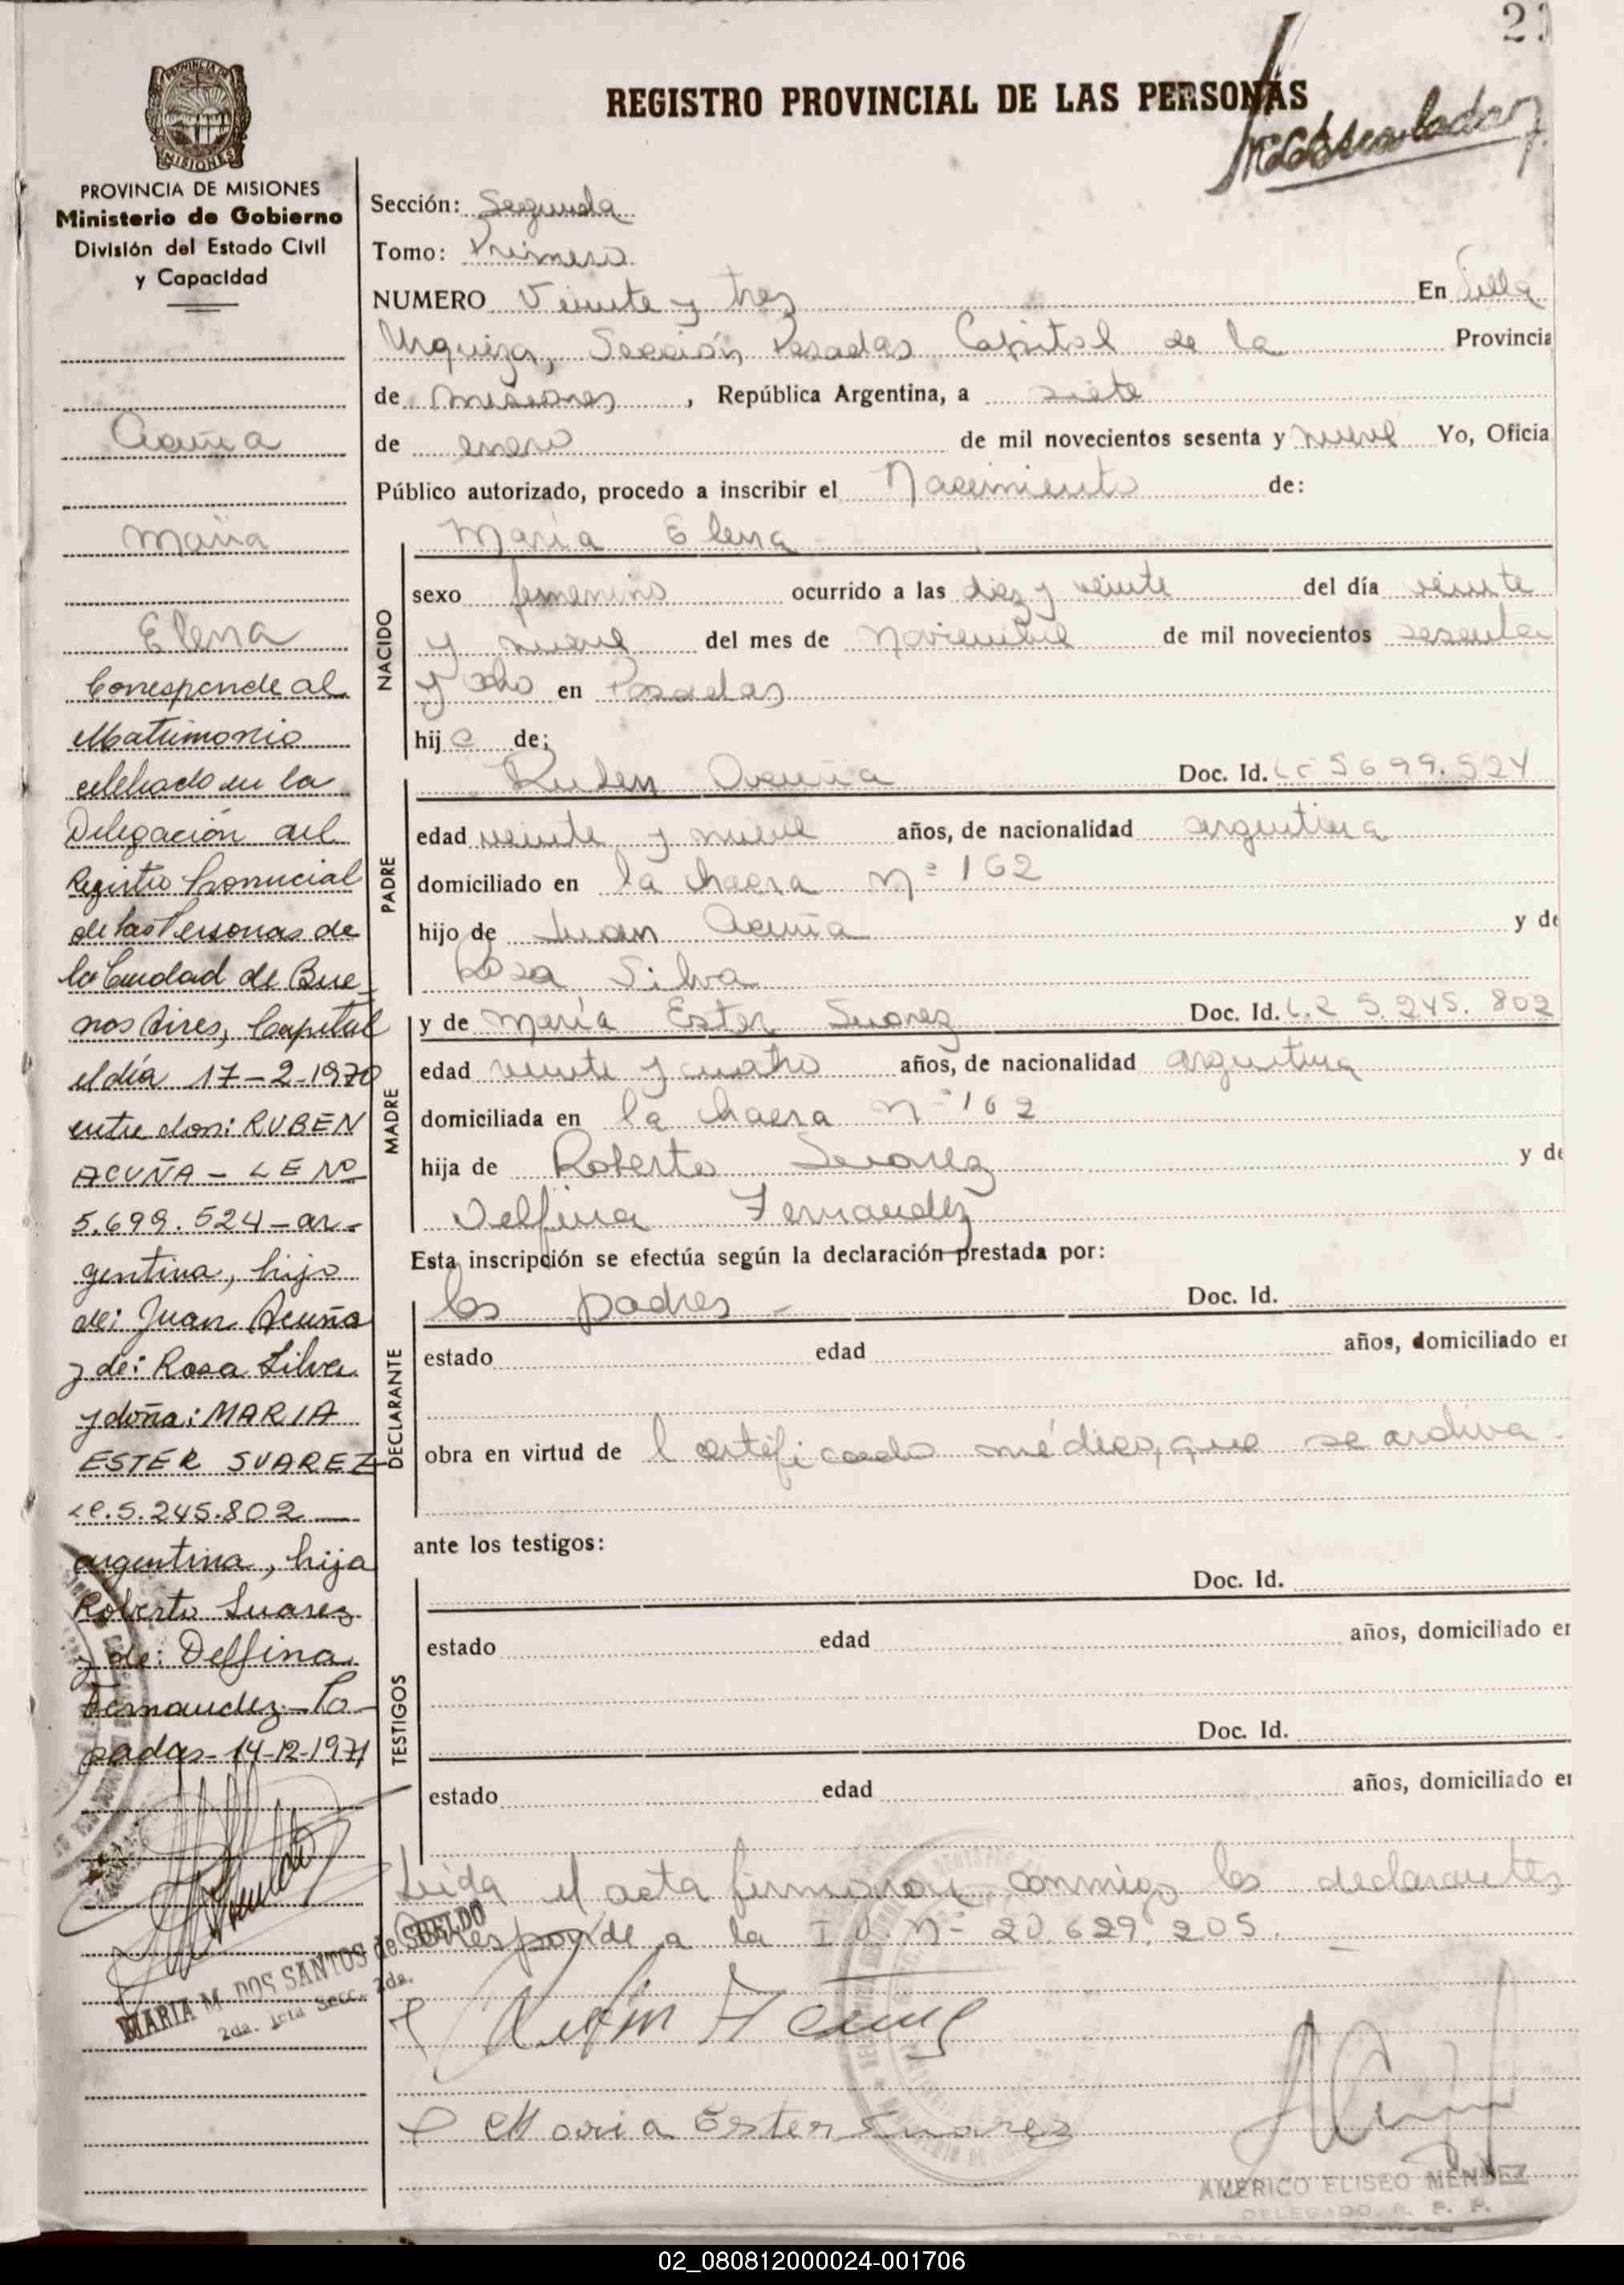 REGISTRO PROVINCIAL DE LAS PERSONAS
PROVINCIA DE MISIONES
Ministerio de Gobierno
División del Estado Civil
y Capacidad
Acuña
Maria
Elena
Corresponde al
Matrimonio
celebrado en la
Delegación del
Registro Provincial
de las Personas de
la Ciudad de Bue
nos Aires, Capital
el día 17-2-1970
entre don: RUBEN
ACUÑA - LE Nº
5.699.524 - ar-
gentina, hijo
de: Juan Acuña
y de: Rosa Silva
y doña: MARIA
ESTER SUAREZ
LC. 5.245.802
argentina, hija
Roberto Suarez
y de: Delfina
Fernandez - Po
sadas - 14-12-1971
MARIA M. DOS SANTOS de SBELDO
Sección: Segunda
Tomo: Primero
NUMERO Veinte y tres En Villa
Urquiza, Sección Posadas Capital de la Provincia
de Misiones, República Argentina, a siete
de enero de mil novecientos sesenta y nueve Yo, Oficia
Público autorizado, procedo a inscribir el Nacimiento de:
NACIDO
María Elena
sexo femenino ocurrido a las diez y veinte del día veinte
y nueve del mes de Noviembre de mil novecientos sesenta
y ocho en Posadas
hija de:
PADRE
Ruben Acuña Doc. Id. 5699.524
edad veinte y nueve años, de nacionalidad argentina
domiciliado en la chacra Nº 162
hijo de Juan Acuña y de
Rosa Silva
MADRE
y de María Ester Suarez Doc. Id. 5.245.802
edad veinte y cuatro años, de nacionalidad argentina
domiciliada en la chacra Nº 162
hija de Roberto Suarez y de
Delfina Fernandez
Esta inscripción se efectúa según la declaración prestada por:
DECLARANTE
los padres - Doc. Id.
estado edad años, domiciliado en
obra en virtud de l certificado médico, que se archiva -
ante los testigos:
TESTIGOS
Doc. Id.
estado edad años, domiciliado en
Doc. Id.
estado edad años, domiciliado en
Leida el acta firmaron conmigo los declarantes
Corresponde a la I.U. Nº 20.629.205.
Rubin Acuña
Maria Ester Suares
AMERICO ELISEO MENDEZ
DELEGADO R. P. P.
02_080812000024-001706